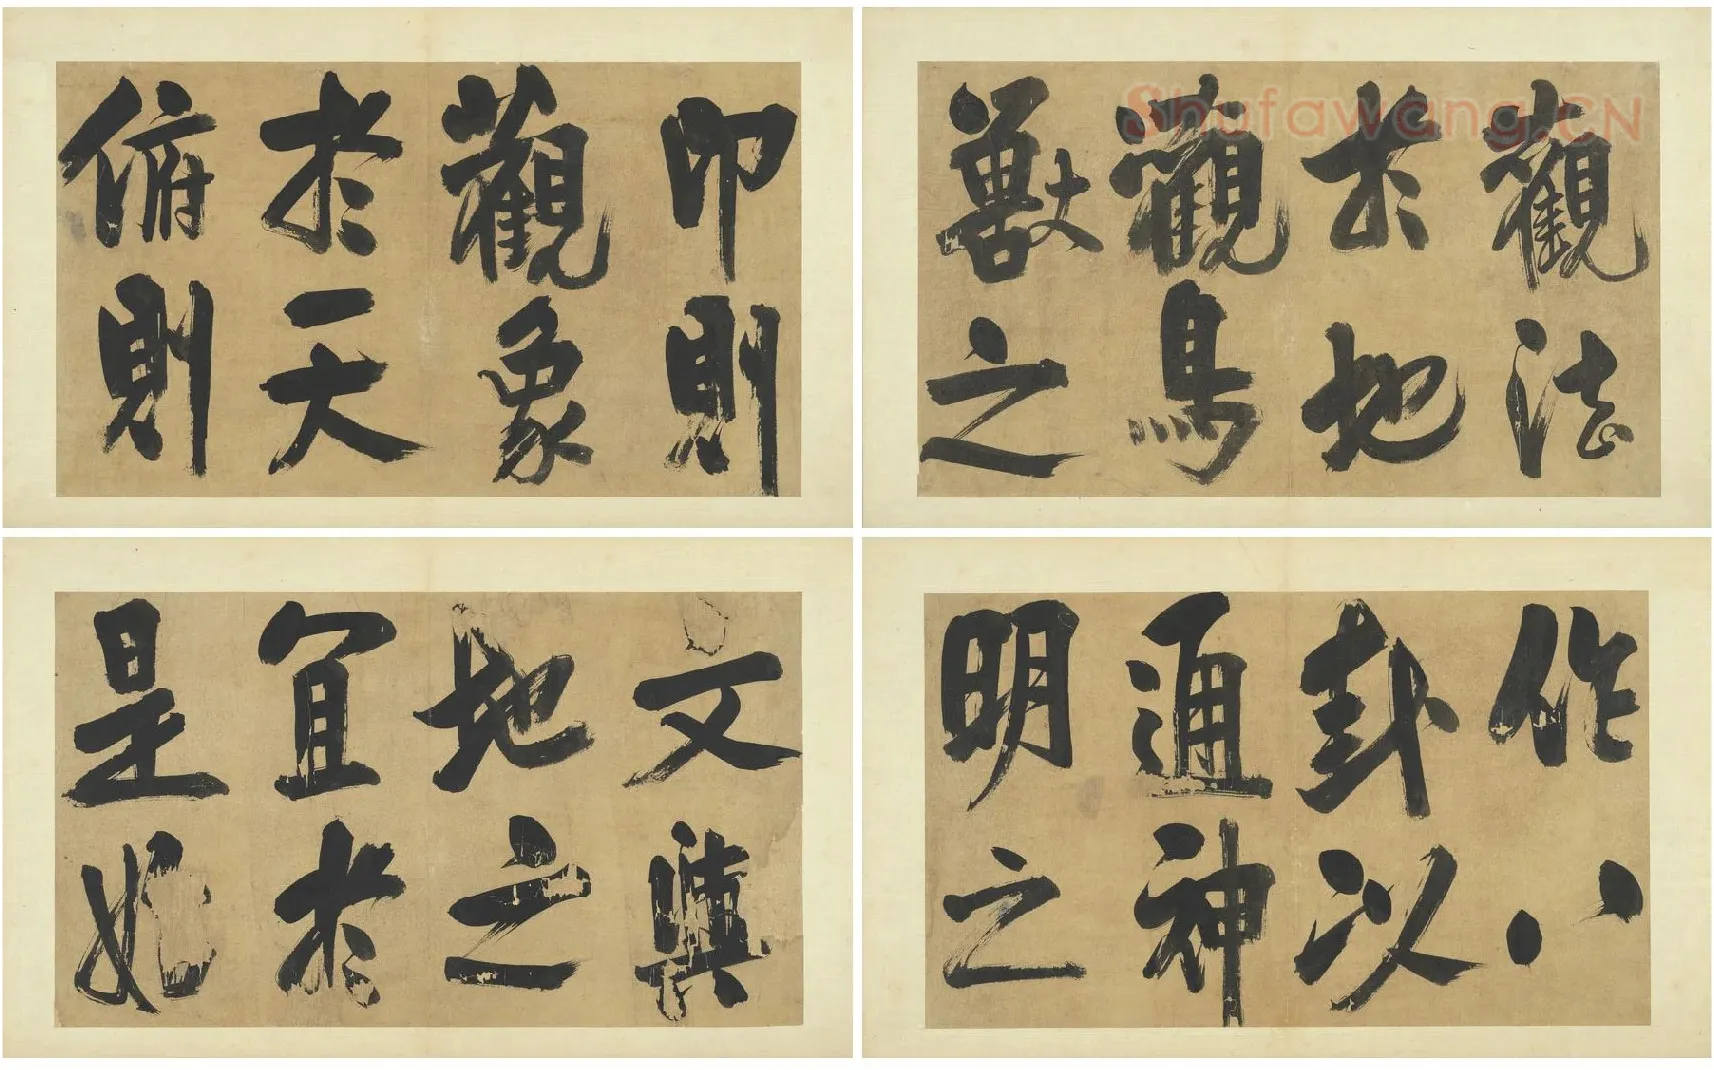 卬則
觀象
於天
俯則
Shufawang.CN
觀法
於地
觀鳥
獸之
文與
地之
宜於
是始
作八
卦以
通神
明之